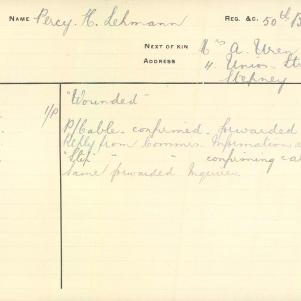 NAME Percy. H. Lehmann REG. &C. 50th/B
NEXT OF KIN Mrs A. Wren
ADDRESS 11 Union Str
Stepney
1/P "Wounded"
P/Cable. confirmed. forwarded
Reply from Commrs. Information a
"Slip" " " confirming ca
Same forwarded Inquirer.